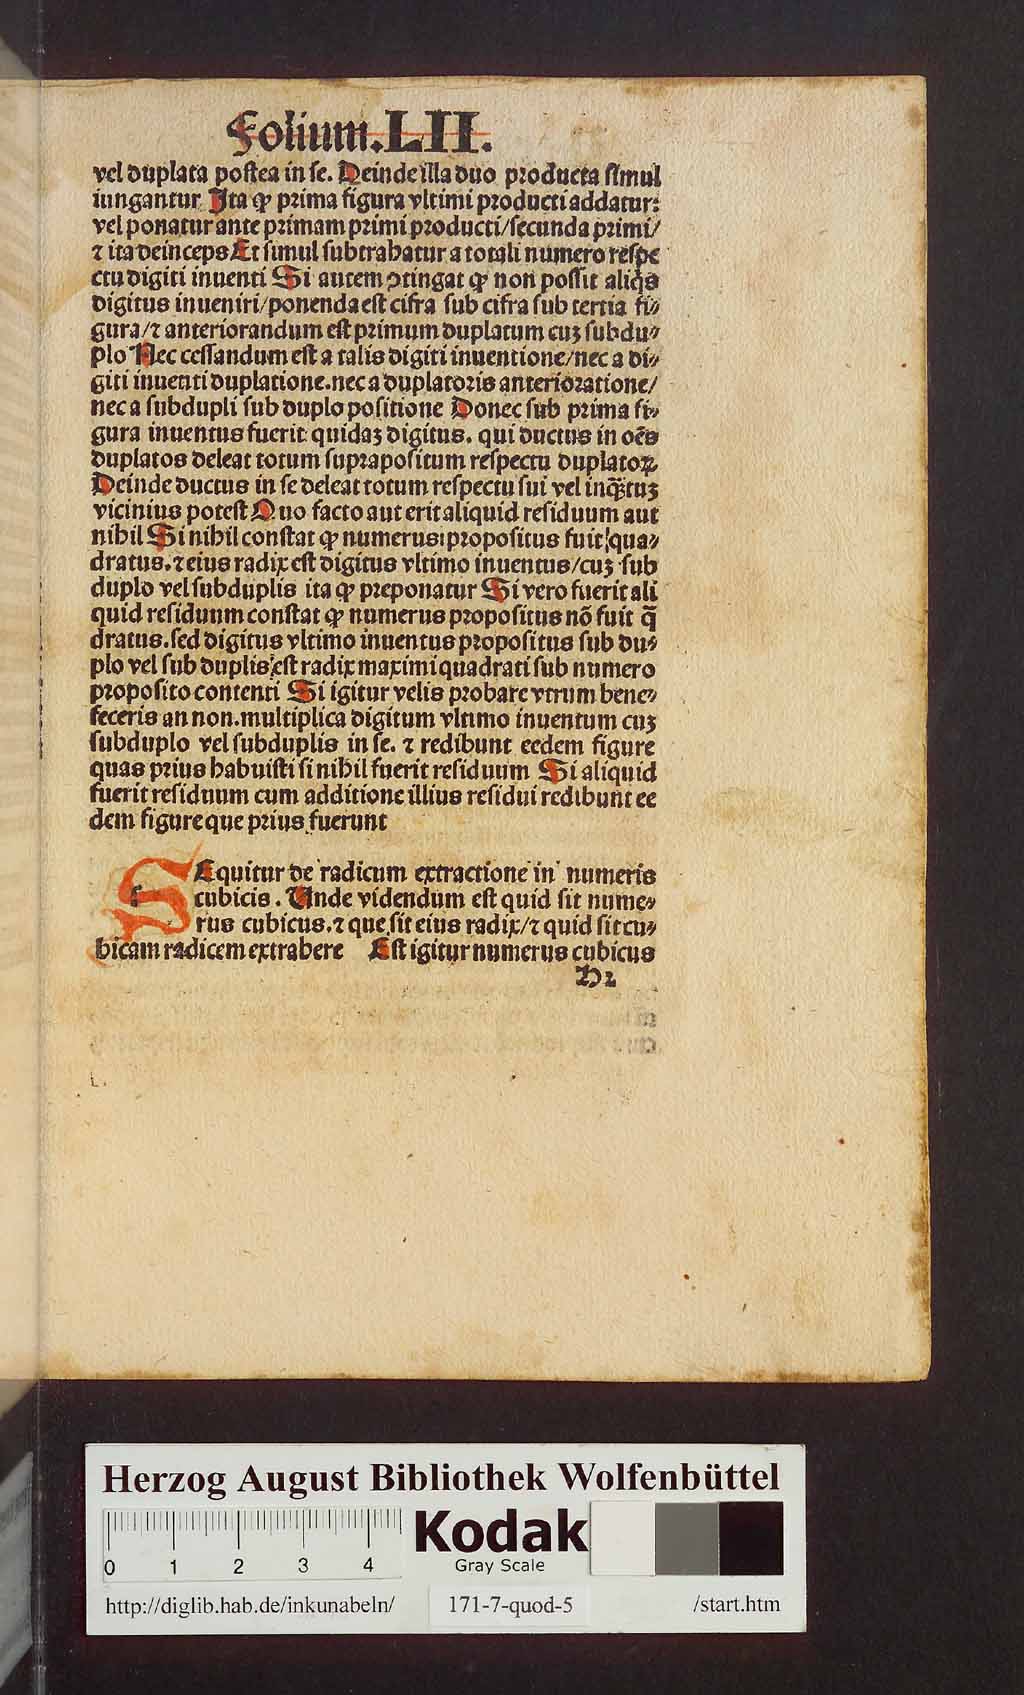 Folium.LII.
vel duplata postea in se. Deinde illa duo producta simul
iungantur Ita ꝙ prima figura vltimi producti addatur:
vel ponatur ante primam primi producti/secunda primi/
⁊ ita deinceps Et simul subtrahatur a totali numero respe
ctu digiti inuenti Si autem ↄtingat ꝙ non possit aliq̇s
digitus inueniri/ponenda est cifra sub cifra sub tertia fi⸗
gura/⁊ anteriorandum est primum duplatum cuꝫ subdu⸗
plo Nec cessandum est a talis digiti inuentione/nec a di⸗
giti inuenti duplatione.nec a duplatoris anterioratione/
nec a subdupli sub duplo positione Donec sub prima fi⸗
gura inuentus fuerit quidaꝫ digitus. qui ductus in oēs
duplatos deleat totum suprapositum respectu duplatoꝝ
Deinde ductus in se deleat totum respectu sui vel inq̄ꝫtuꝫ
vicinius potest Quo facto aut erit aliquid residuum aut
nihil Si nihil constat ꝙ numerus propositus fuit qua⸗
dratus.⁊ eius radix est digitus vltimo inuentus/cuꝫ sub
duplo vel subduplis ita ꝙ preponatur Si vero fuerit ali
quid residuum constat ꝙ numerus propositus nō fuit q̄
dratus.sed digitus vltimo inuentus propositus sub du⸗
plo vel sub duplis est radix maximi quadrati sub numero
proposito contenti Si igitur velis probare vtrum bene⸗
feceris an non.multiplica digitum vltimo inuentum cuꝫ
subduplo vel subduplis in se. ⁊ redibunt eedem figure
quas prius habuisti si nihil fuerit residuum Si aliquid
fuerit residuum cum additione illius residui redibunt ee
dem figure que prius fuerunt
SEquitur de radicum extractione in numeris
cubicis. Unde videndum est quid sit nume⸗
rus cubicus.⁊ que sit eius radix/⁊ quid sit cu⸗
bicam radicem extrahere Est igitur numerus cubicus
Herzog August Bibliothek Wolfenbüttel
0 1 2 3 4
Kodak
Gray Scale
http://diglib.hab.de/inkunabeln/ 171-7-quod-5 /start.htm